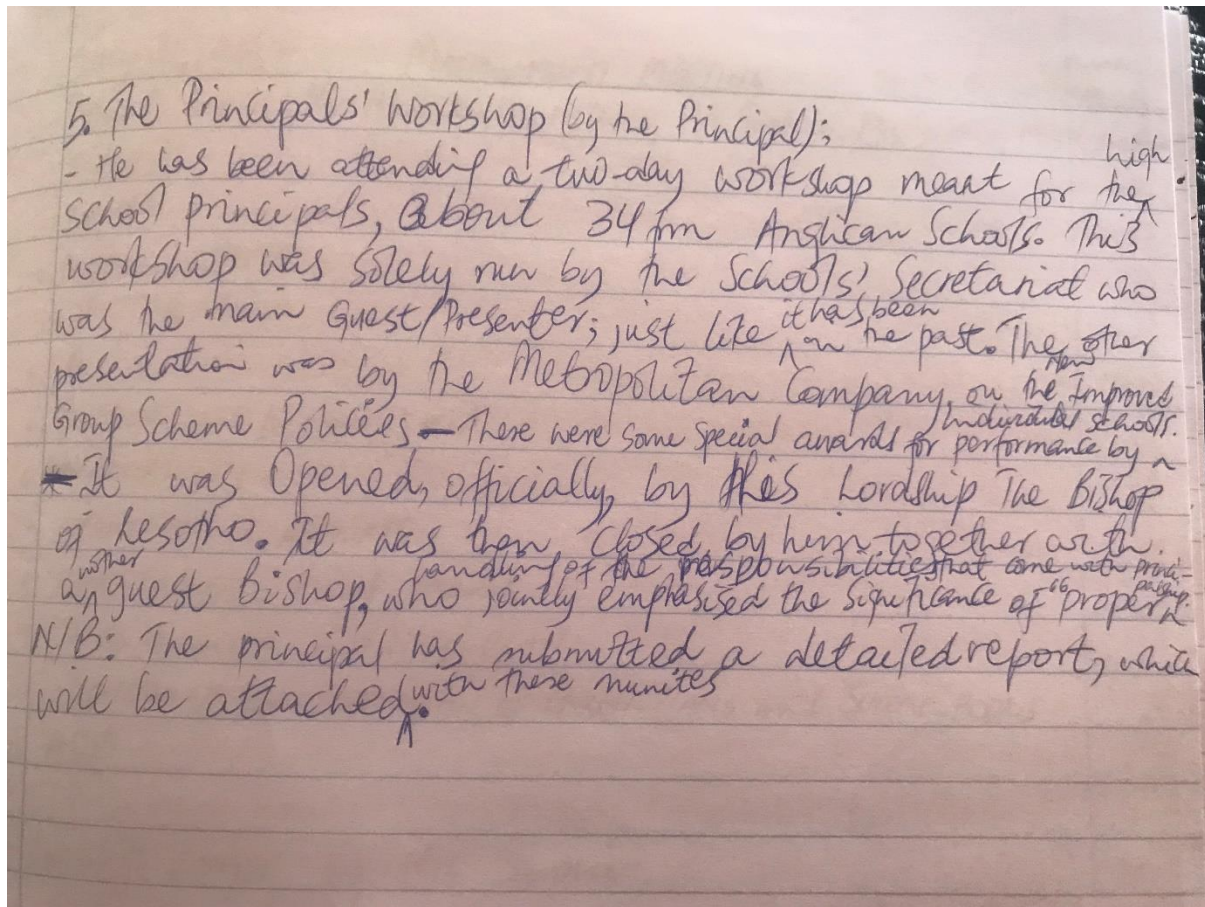 5. The Principals' Workshop (by the Principal);
- He has been attending a two-day workshop meant for the high
School principals, about 34 frm Anglican Schools. This
workshop was solely run by the Schools' Secretariat who
was the main Guest/Presenter; just like it has been in the past. The other
presentation was by the Metropolitan Company, on the New Improved
Group Scheme Policies - There were some special awards for performance by individual schools.
- It was Opened, officially, by His Lordship The Bishop
of Lesotho. It was then, closed, by him together with
another guest Bishop, who jointly emphasised the significance of "proper
handling of the responsibilities that come with principalship.
N/B: The principal has submitted a detailed report, which
will be attached with these munites.